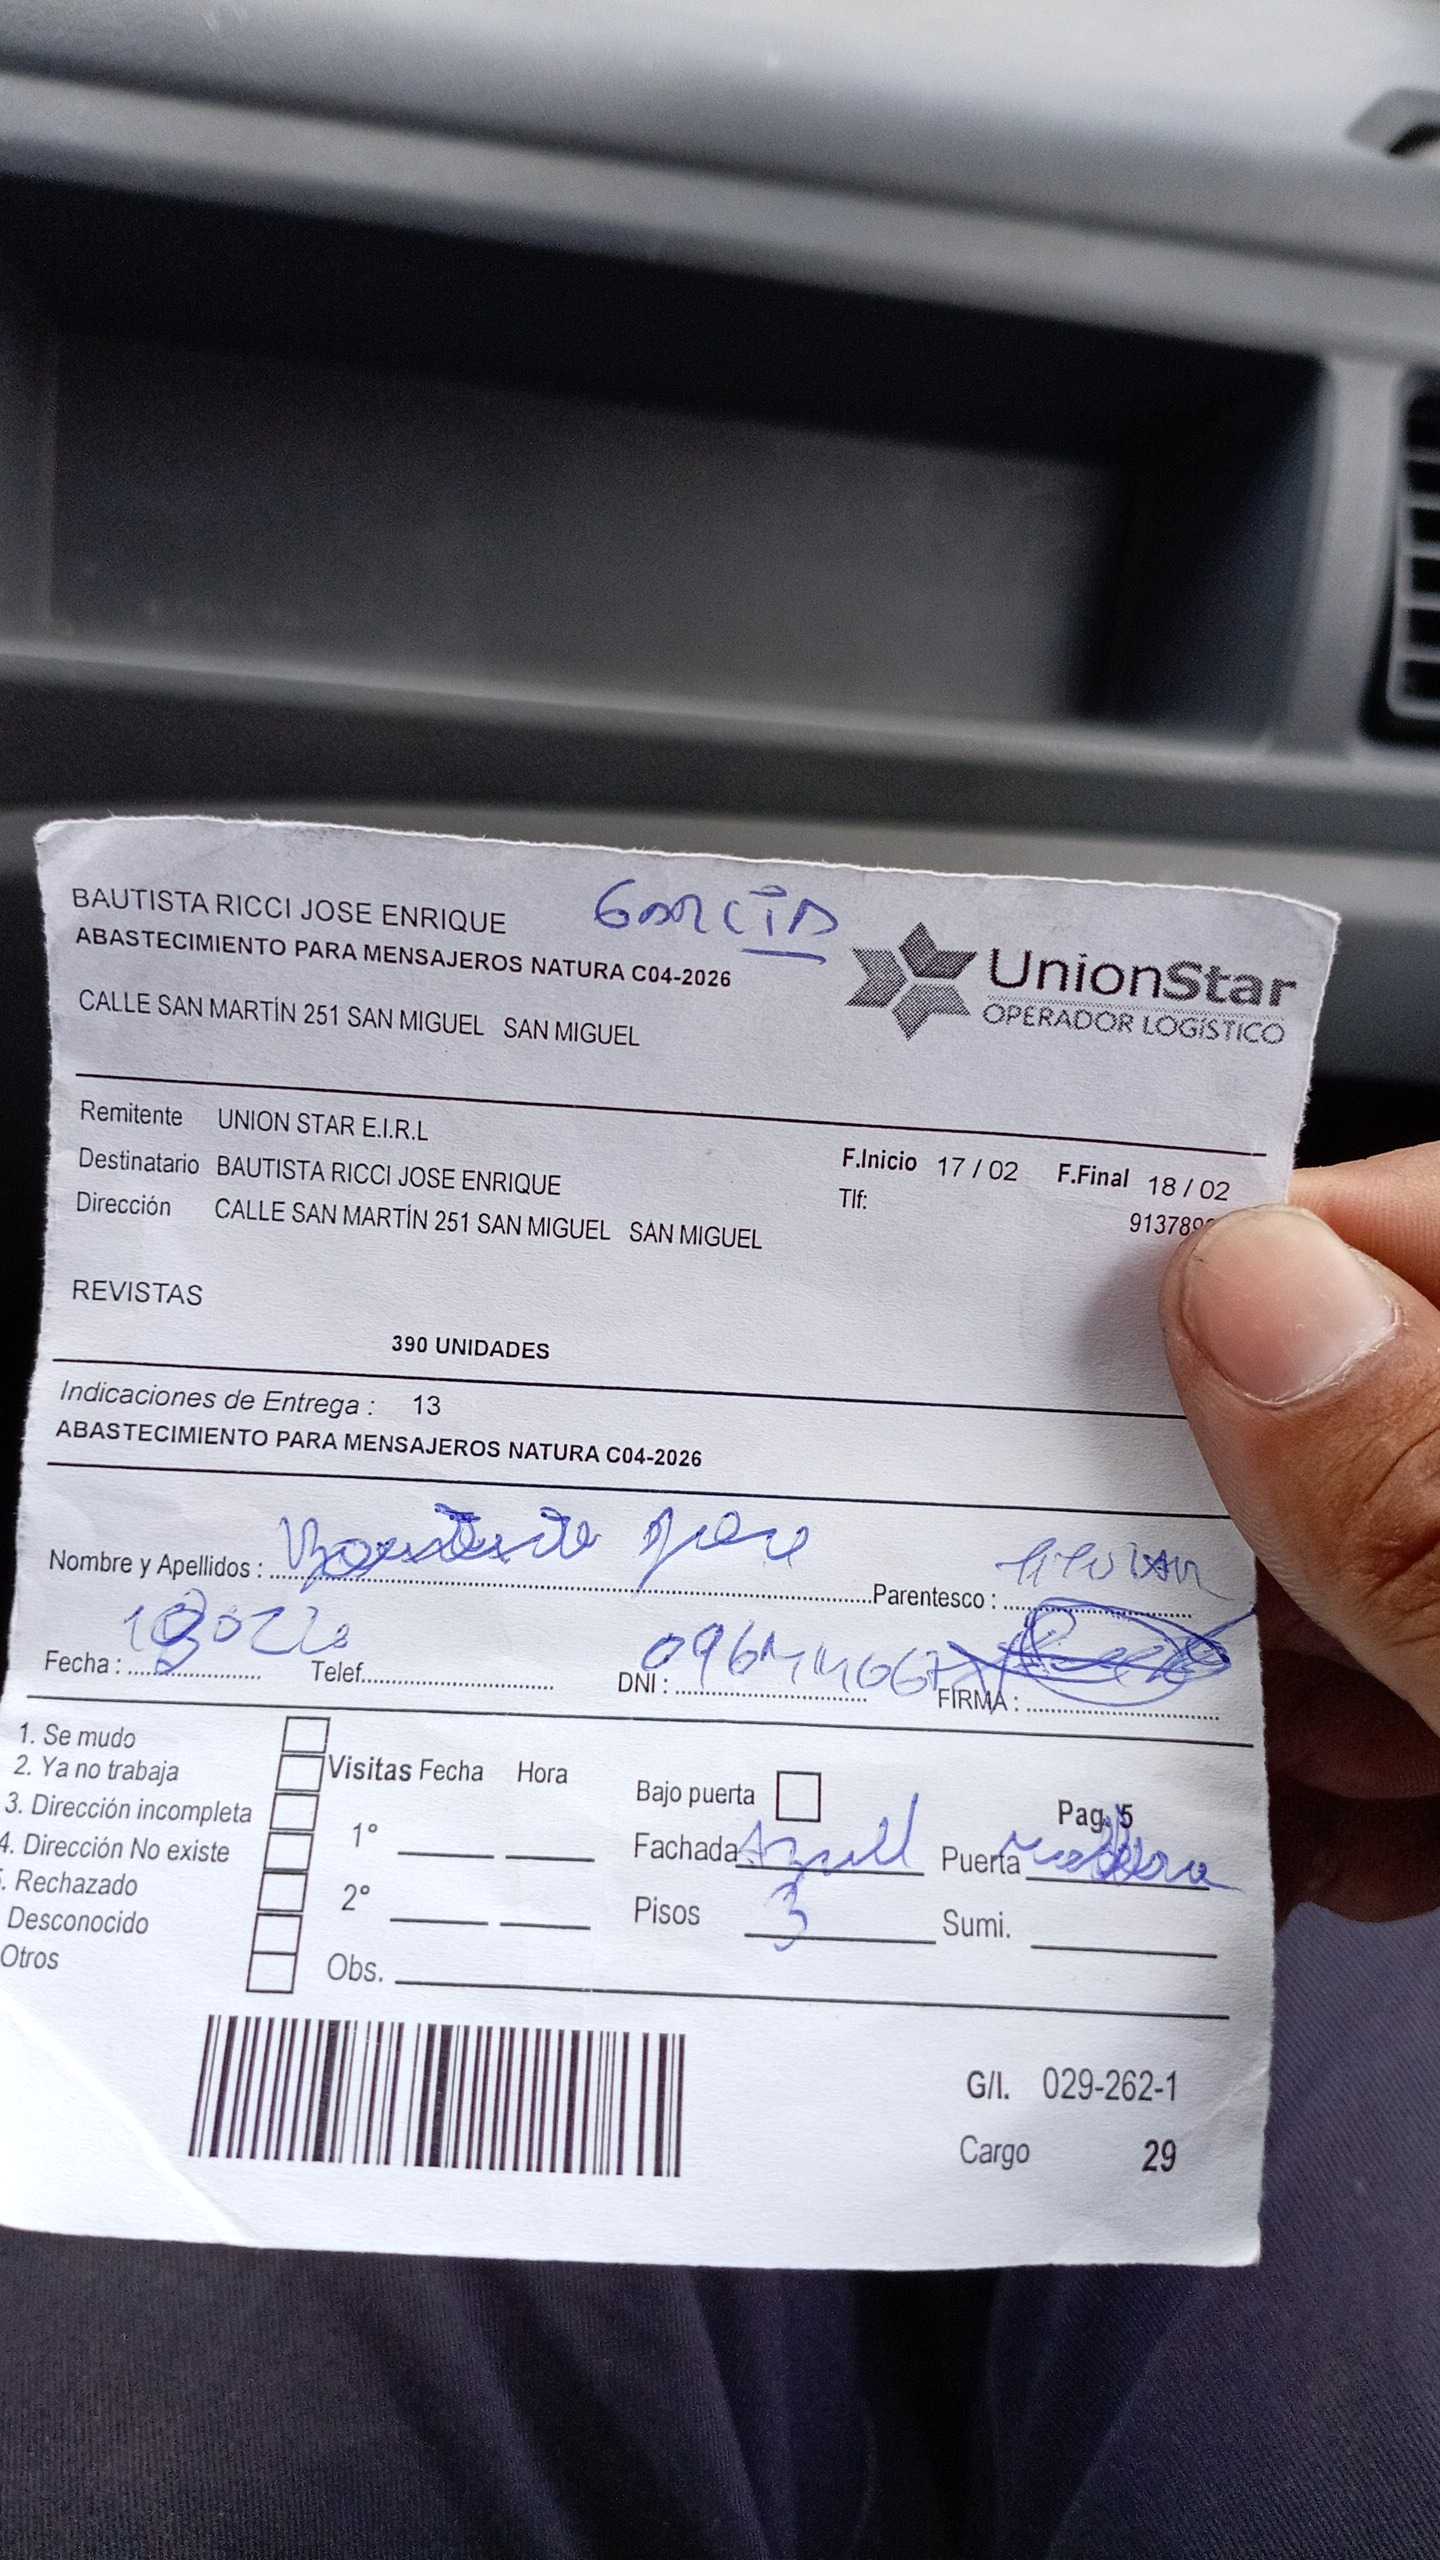 BAUTISTA RICCI JOSE ENRIQUE GARCIA
ABASTECIMIENTO PARA MENSAJEROS NATURA C04-2026
CALLE SAN MARTÍN 251 SAN MIGUEL SAN MIGUEL
UnionStar
OPERADOR LOGÍSTICO
Remitente UNION STAR E.I.R.L
Destinatario BAUTISTA RICCI JOSE ENRIQUE
Dirección CALLE SAN MARTÍN 251 SAN MIGUEL SAN MIGUEL
F.Inicio 17 / 02 F.Final 18 / 02
Tlf: 913789
REVISTAS
390 UNIDADES
Indicaciones de Entrega : 13
ABASTECIMIENTO PARA MENSAJEROS NATURA C04-2026
Nombre y Apellidos : Jose Parentesco : TITULAR
Fecha : Telef. DNI : FIRMA :
1. Se mudo
2. Ya no trabaja
3. Dirección incompleta
4. Dirección No existe
. Rechazado
Desconocido
Otros
Visitas Fecha Hora
1°
2°
Obs.
Bajo puerta
Pag. 5
Fachada Azul Puerta madera
Pisos 3 Sumi.
G/I. 029-262-1
Cargo 29